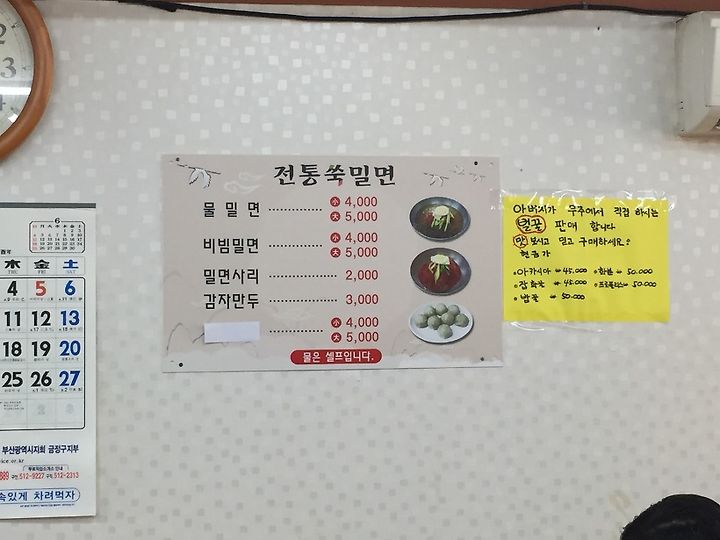 2
3
4
6
木 金 土
THU FRI SAT
4 5 6
11 12 13
18 19 20
25 26 27
2 3
부산광역시지회 금정구지부
512-9227 512-2313
속있게 차려먹자
전통쑥밀면
물밀면 ............ 小 4,000
大 5,000
비빔밀면 ............ 小 4,000
大 5,000
밀면사리 ............ 2,000
감자만두 ............ 3,000
............ 小 4,000
大 5,000
물은 셀프입니다.
아버지가 우주에서 직접 하시는
벌꿀 판매 합니다
맛보시고 믿고 구매하세요?
현금가
•아카시아 ₩45.000 •화분 ₩50.000
•잡화꿀 ₩45.000 •프로폴리스 ₩50.000
•밤꿀 ₩50.000